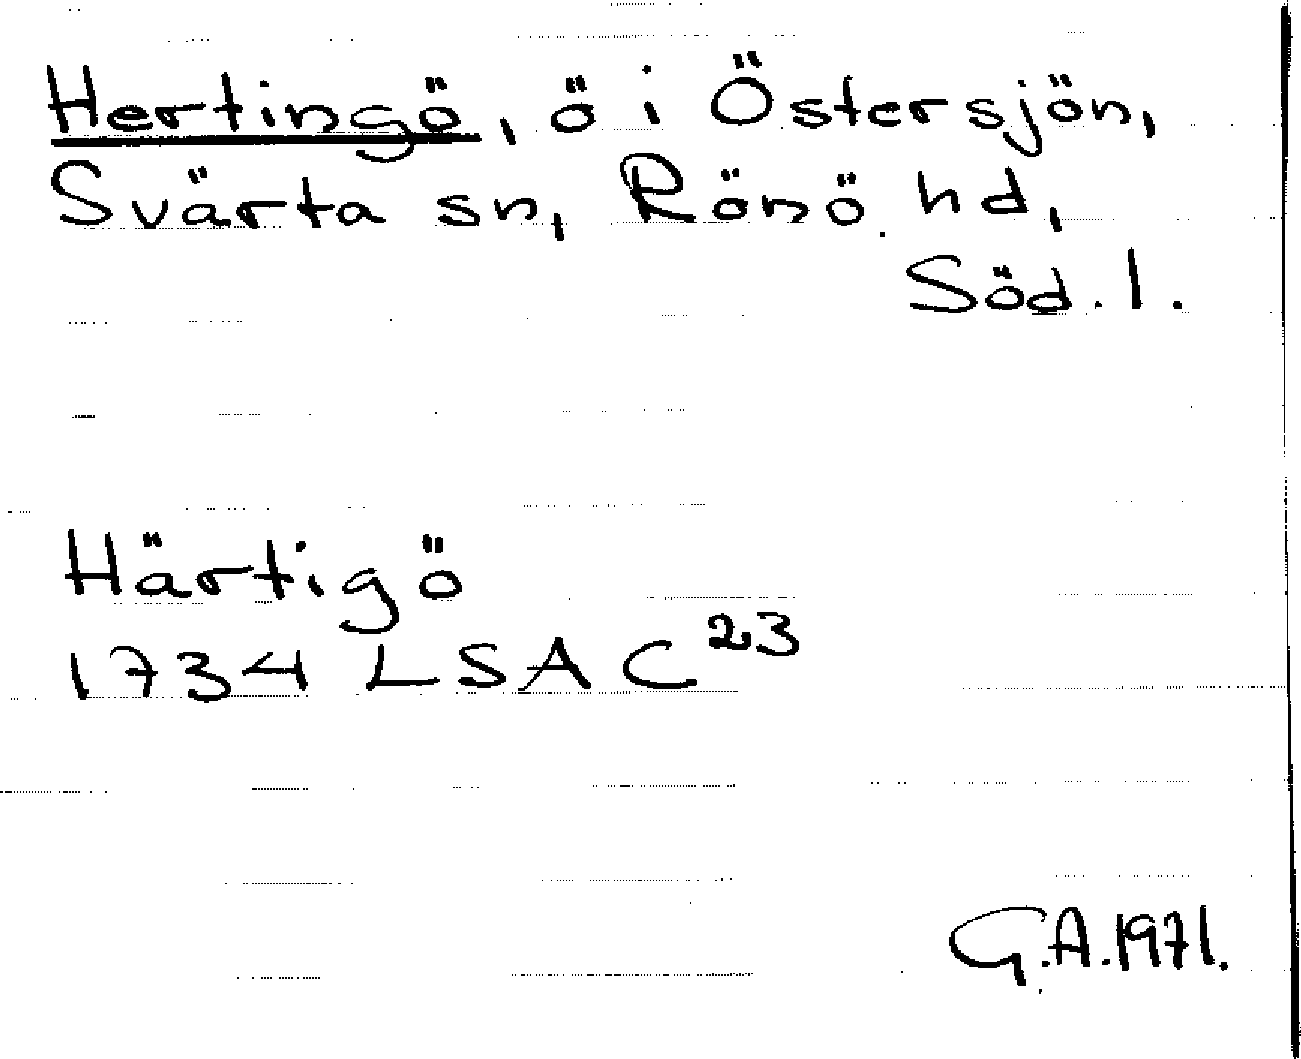 Hertingö, ö i Östersjön,
Svärta sn, Rönö hd,
Söd. l.
Härtigö
1734 LSA C 23
G.A. 1971.